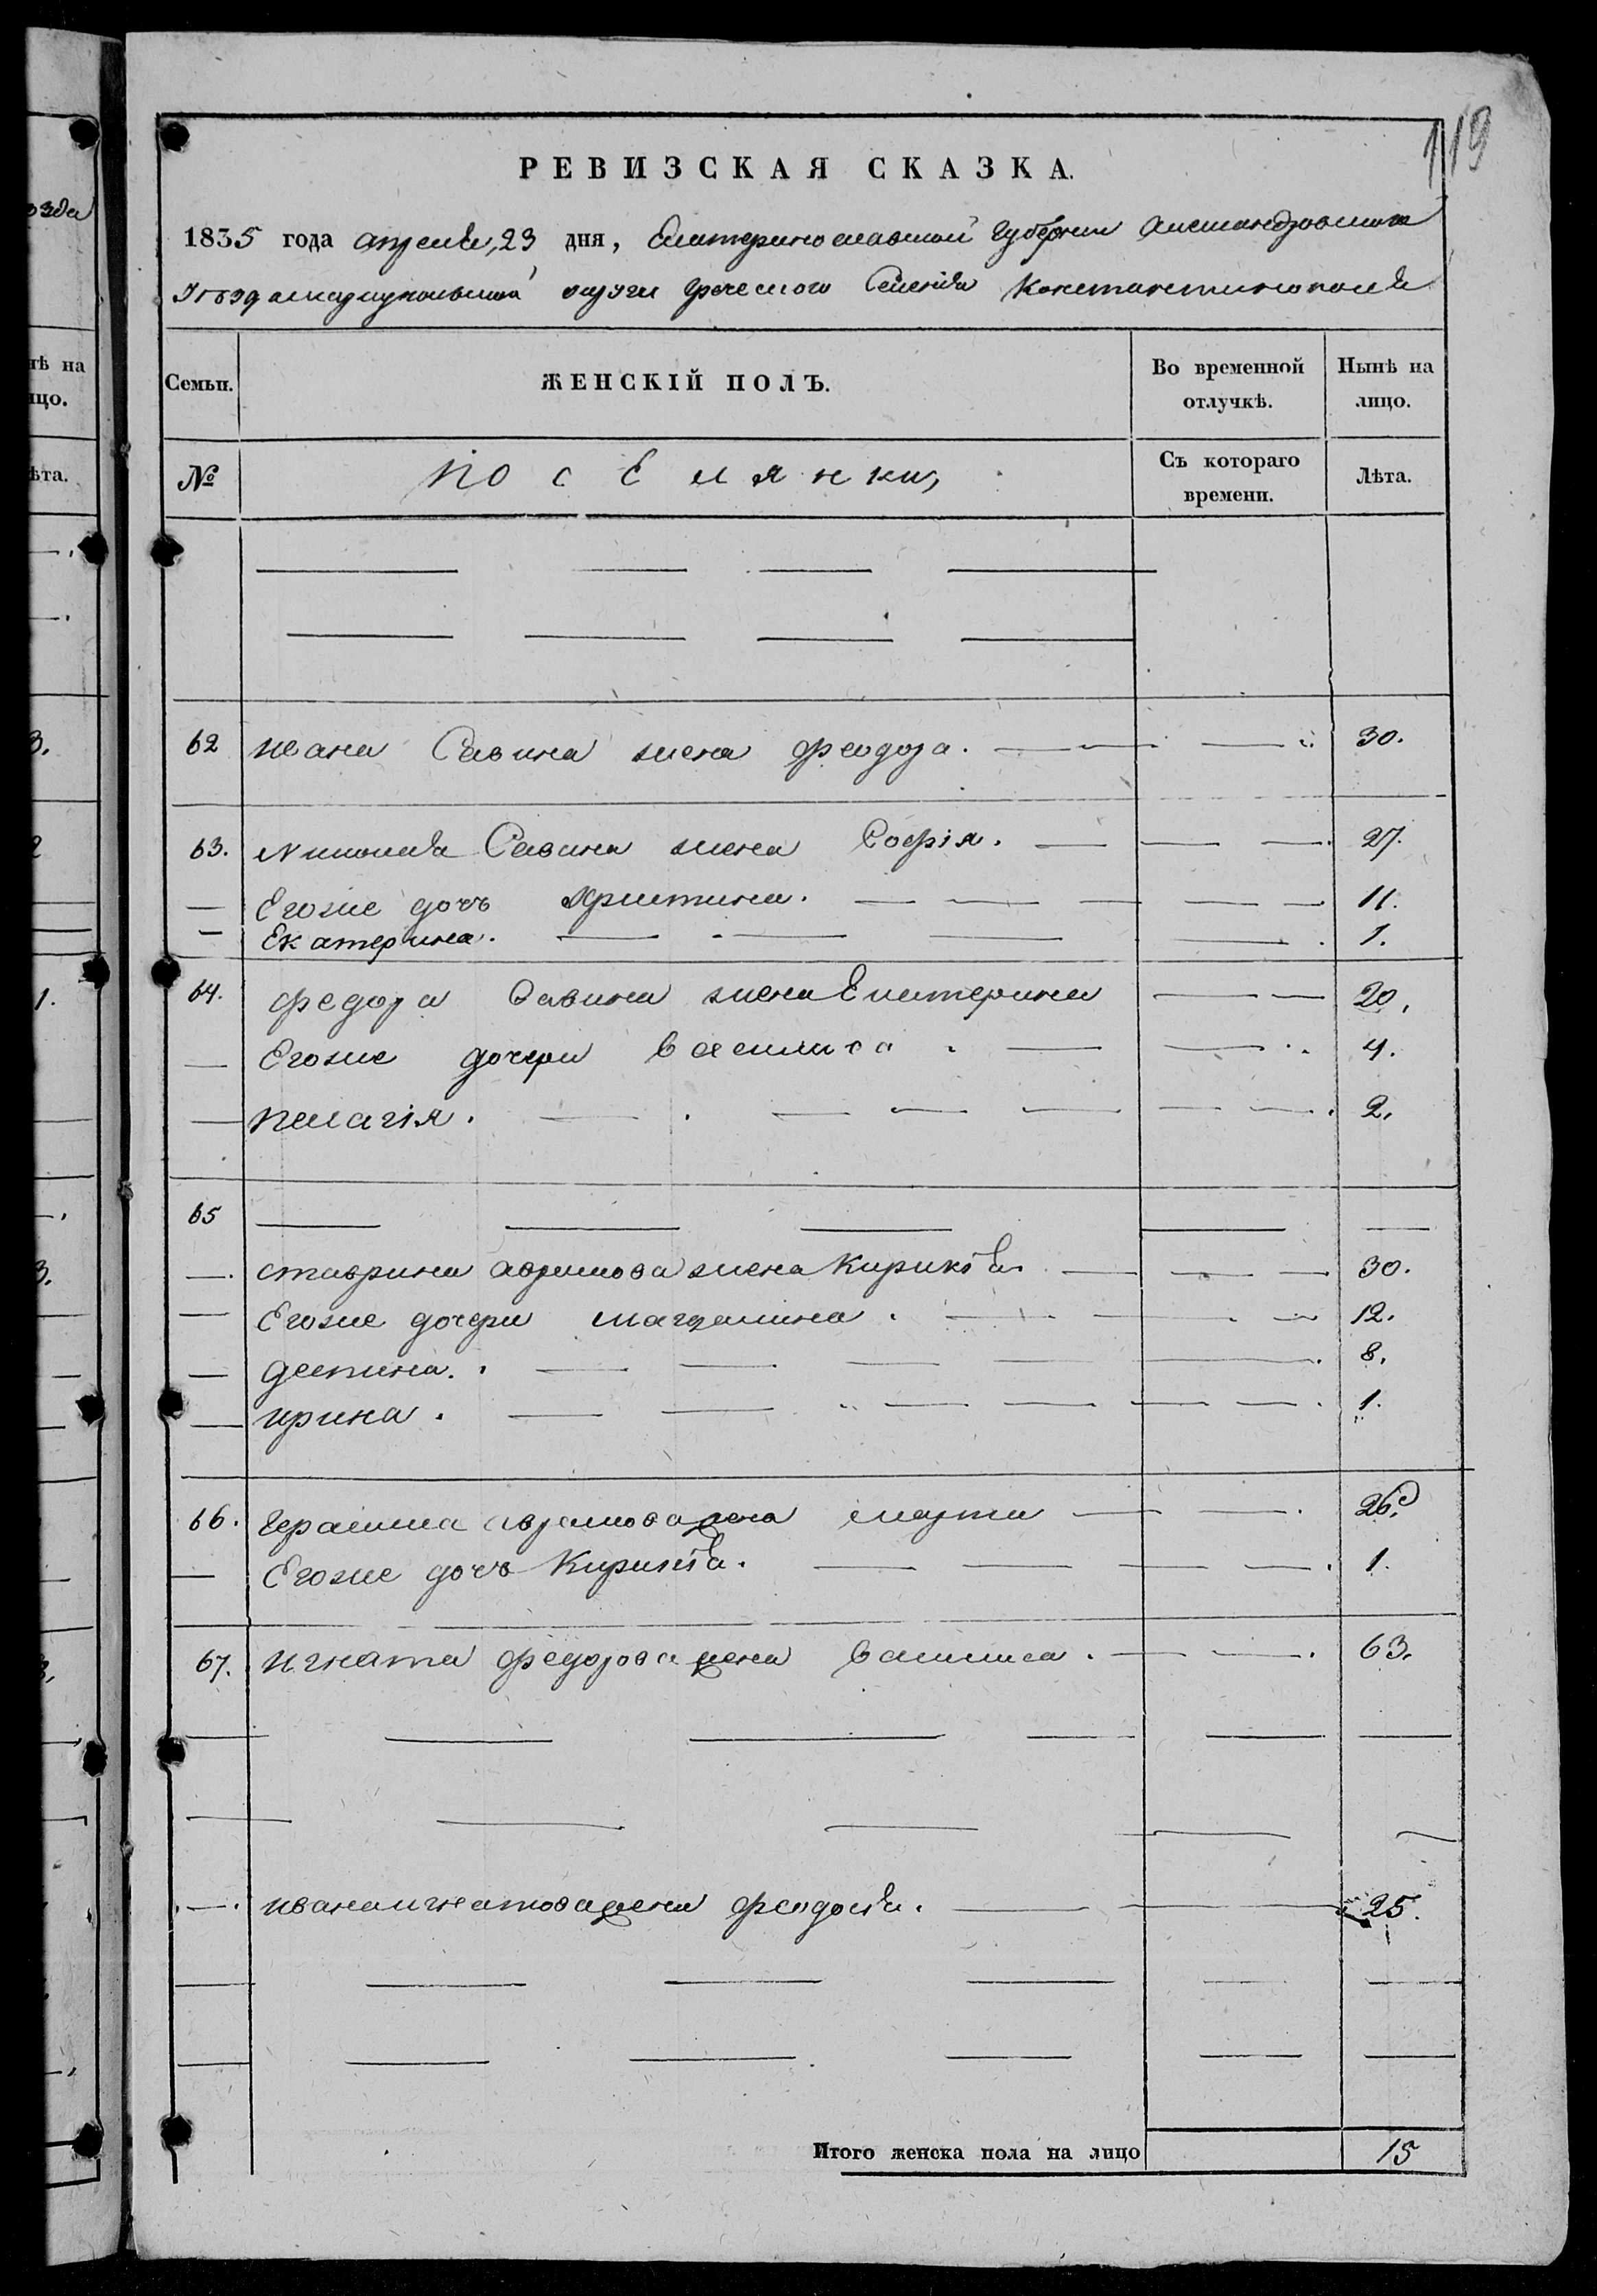 119
РЕВИЗСКАЯ СКАЗКА.
1835 года апреля, 23 дня, Екатеринославской Губернии Александровского
Уезда мариупольской округи греческого Селения Константинополя
Семьи. ЖЕНСКІЙ ПОЛЪ. Во временной отлучкѣ. Нынѣ на лицо.
№ поселянки, Съ котораго времени. Лѣта.
62 ивана Савина жена феодора. 30.
63. Николая Савина жена Софія. 27.
— Егоже дочь христина. 11.
— Екатерина. 1.
64. федора Савина жена Екатерина 20.
— Егоже дочери василиса 4.
— пелагія. 2.
65
— ставрина аврамова жена Киріакія 30.
— Егоже дочери магдалина. 12.
— деспина. 8.
— ирина. 1.
66. Герасима аврамова жена марта 26.
— Егоже дочь Киріакія. 1.
67. игната федорова жена василиса. 63.
— ивана игнатова жена феодосія. 25.
Итого женска пола на лицо 15
нѣ на
лицо.
ѣта.